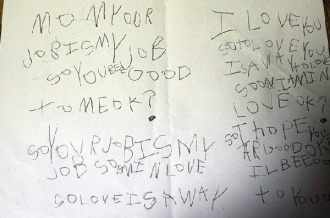 MOMYOUR
JOBISMYJOB
SOYOUBEEGOOD
tOMEOK?
SOYOURJOBISMY
JOB SOIMINLOVE
SOLOVEISAWAY
I LOVEYOU
SOIOLOVEYOU
ISAWAYtOLOVE
SOONIAMIN
LOVE OK?
SOIHOPEYOU
ARGOODOK
ILBEEGOOD
tO YOU